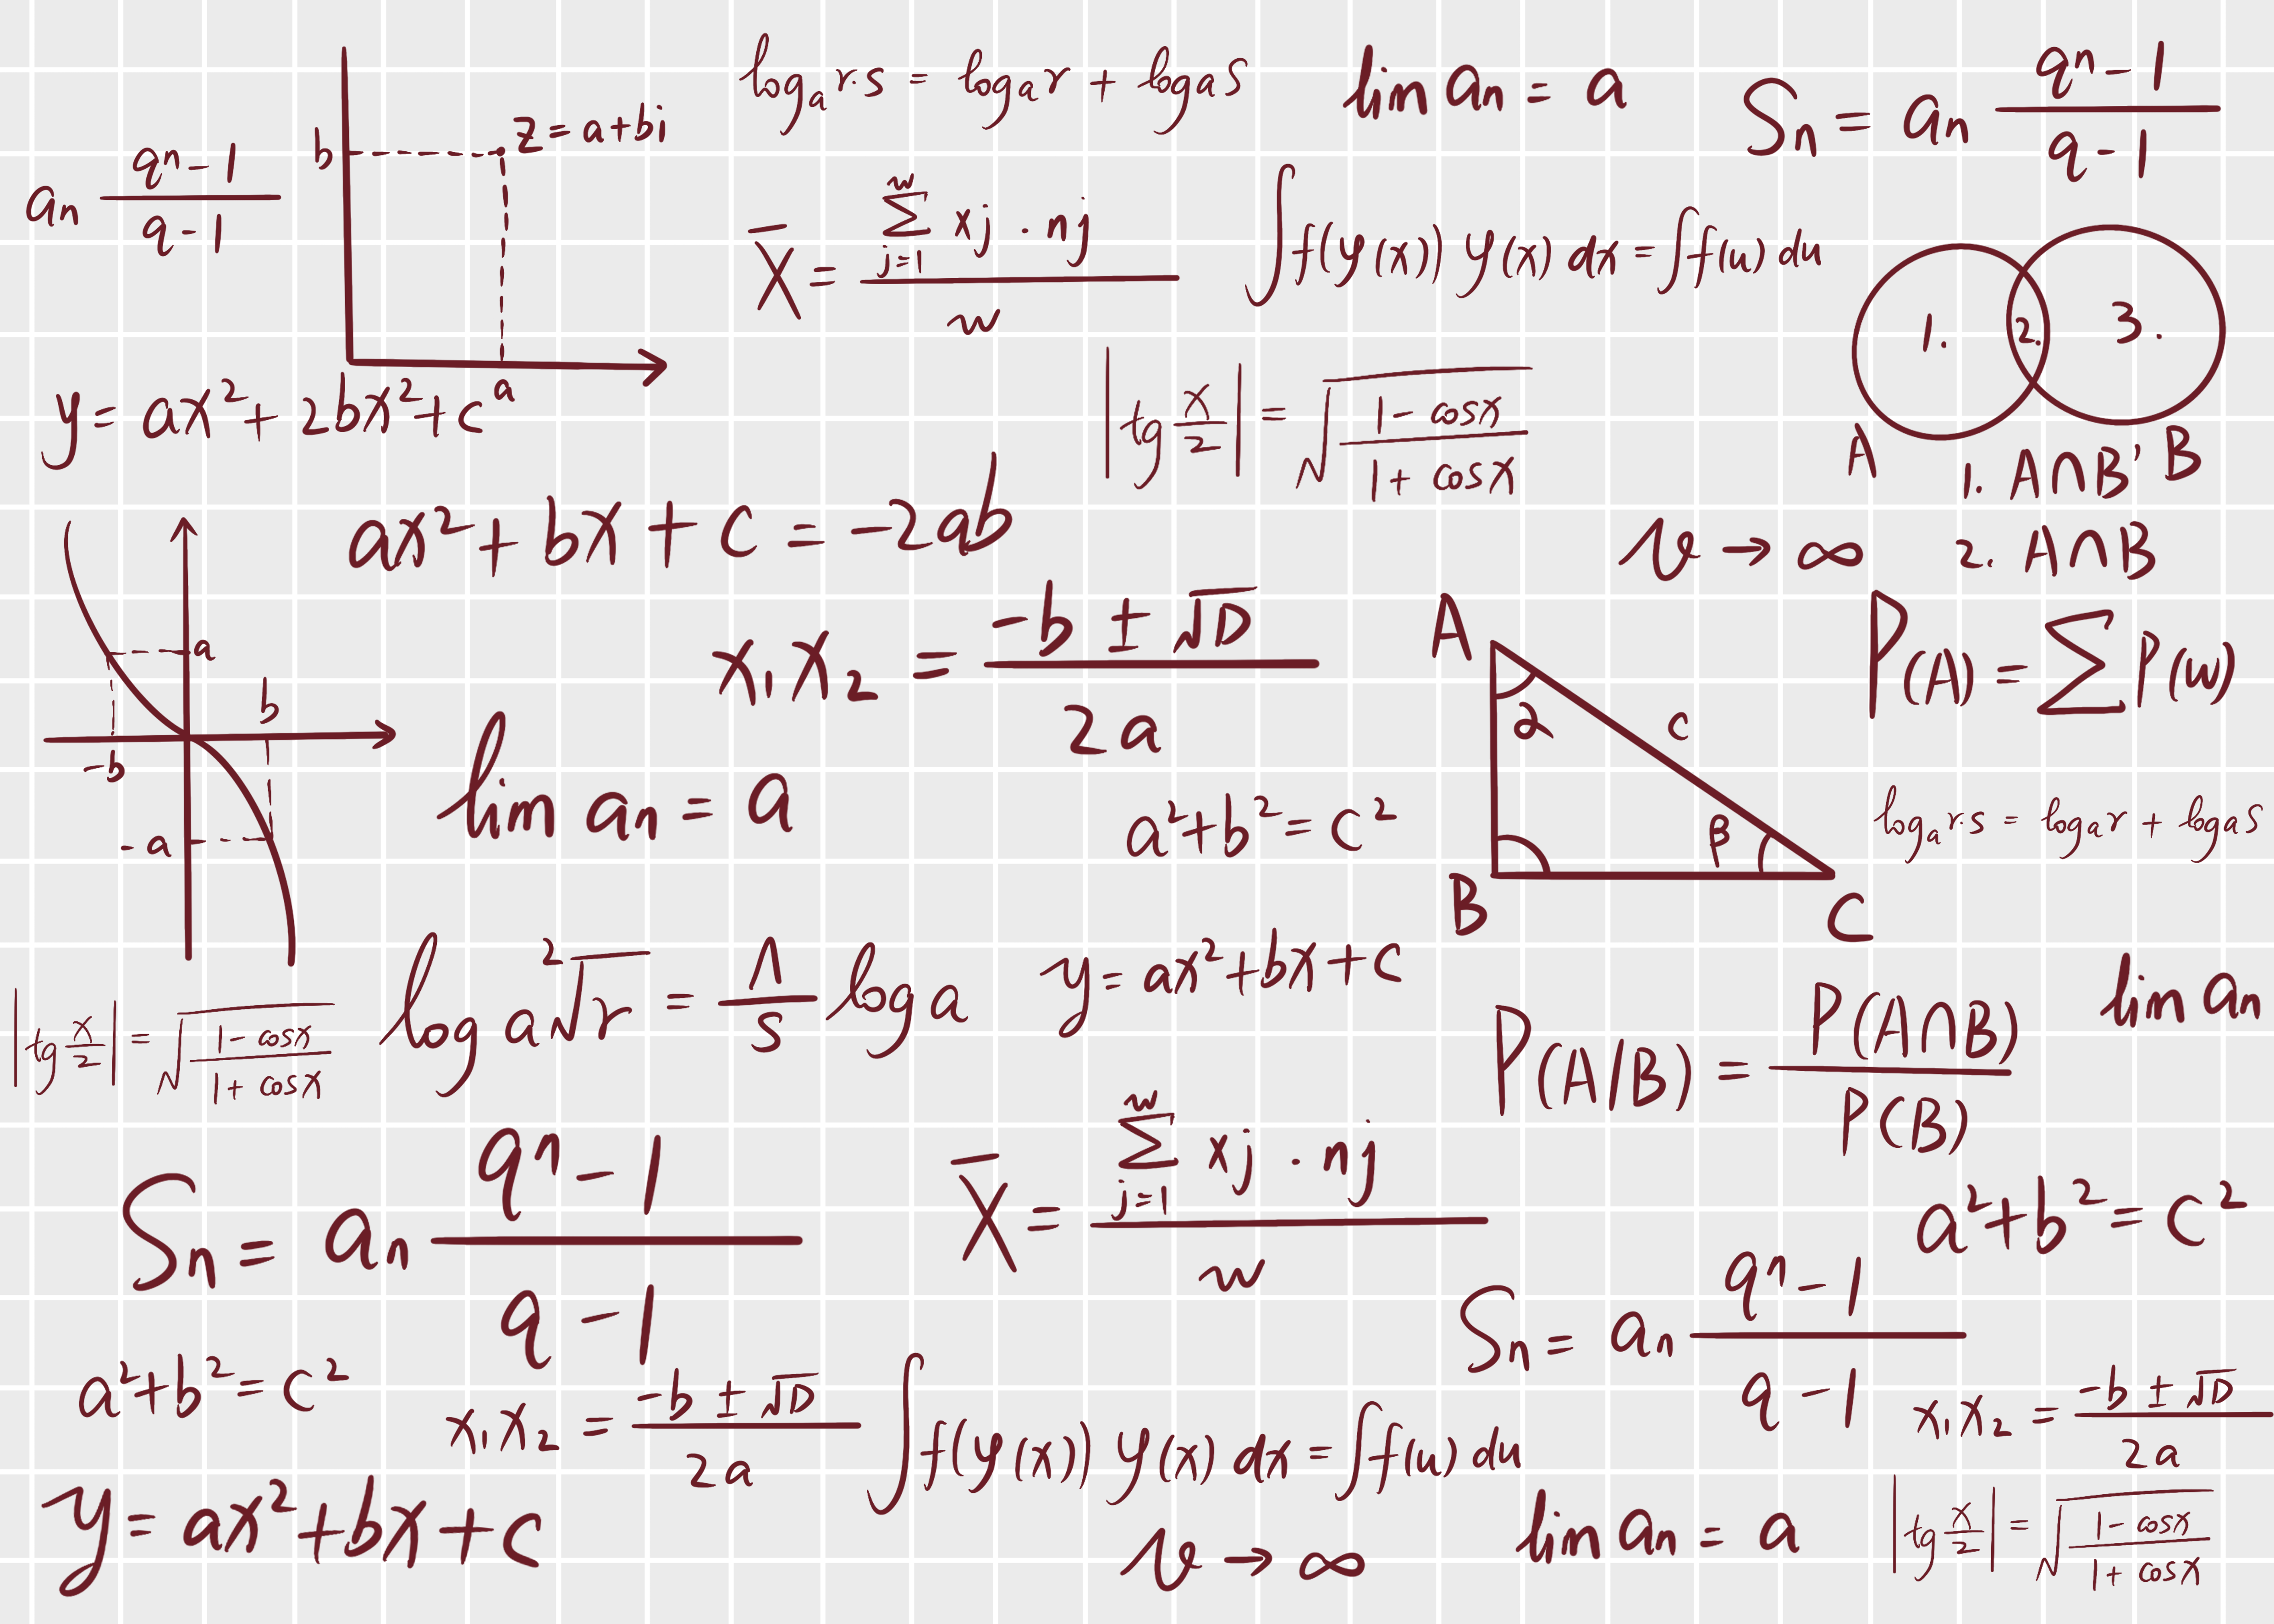 log_a r·s = log_a r + log a s
lim an = a
Sn = an (qⁿ - 1)/(q - 1)
an (qⁿ - 1)/(q - 1)
b
z = a + bi
a
X̄ = (Σ_{j=1}^{w} xj · nj)/w
∫f(φ(x)) φ(x) dx = ∫f(u) du
1. 2. 3.
A B
y = ax² + 2bx² + c
|tg x/2| = √((1 - cosx)/(1 + cosx))
1. A∩B'
ax² + bx + c = -2ab
→ ∞
2. A∩B
a
b
-b
-a
x₁x₂ = (-b ± √D)/2a
A
α
c
β
B
C
P(A) = Σ P(w)
lim an = a
a² + b² = c²
log_a r·s = log_a r + log a s
log a ²√r = Λ/s log a
y = ax² + bx + c
lim an
|tg x/2| = √((1 - cosx)/(1 + cosx))
P(A|B) = P(A∩B)/P(B)
Sn = an (qⁿ - 1)/(q - 1)
X̄ = (Σ_{j=1}^{w} xj · nj)/w
a² + b² = c²
Sn = an (qⁿ - 1)/(q - 1)
a² + b² = c²
x₁x₂ = (-b ± √D)/2a
∫f(φ(x)) φ(x) dx = ∫f(u) du
x₁x₂ = (-b ± √D)/2a
y = ax² + bx + c
→ ∞
lim an = a
|tg x/2| = √((1 - cosx)/(1 + cosx))